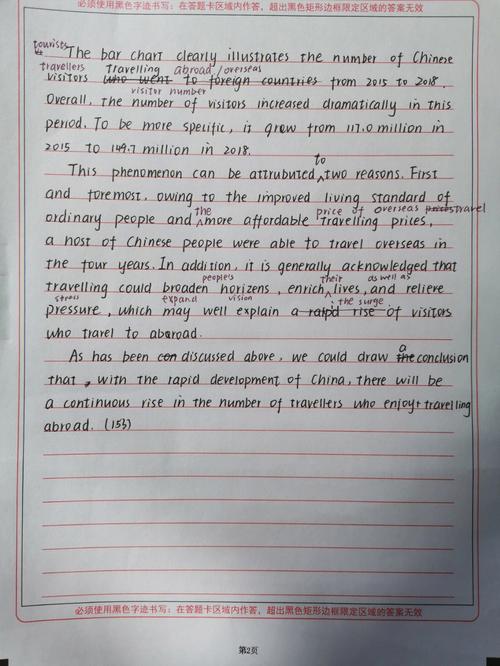 必须使用黑色字迹书写：在答题卡区域内作答，超出黑色矩形边框限定区域的答案无效
tourists
The bar chart clearly illustrates the number of Chinese
travellers travelling abroad/overseas
visitors who went to foreign countries from 2015 to 2018.
visitor number
Overall, the number of visitors increased dramatically in this
period. To be more specific, it grew from 117.0 million in
2015 to 149.7 million in 2018.
to
This phenomenon can be attrubuted ^ two reasons. First
and foremost, owing to the improved living standard of
the price of overseas prices travel
ordinary people and ^ more affordable travelling prices,
a host of Chinese people were able to travel overseas in
the four years. In addition, it is generally acknowledged that
people's their as well as
travelling could broaden horizens, enrich ^ lives, and relieve
stress expand vision is the surge
pressure, which may well explain a raipd rise of visitors
who travel to abroad.
a
As has been con discussed above, we could draw the conclusion
that, with the rapid development of China, there will be
a continuous rise in the number of travellers who enjoy travelling
abroad. (153)
必须使用黑色字迹书写：在答题卡区域内作答，超出黑色矩形边框限定区域的答案无效
第2页